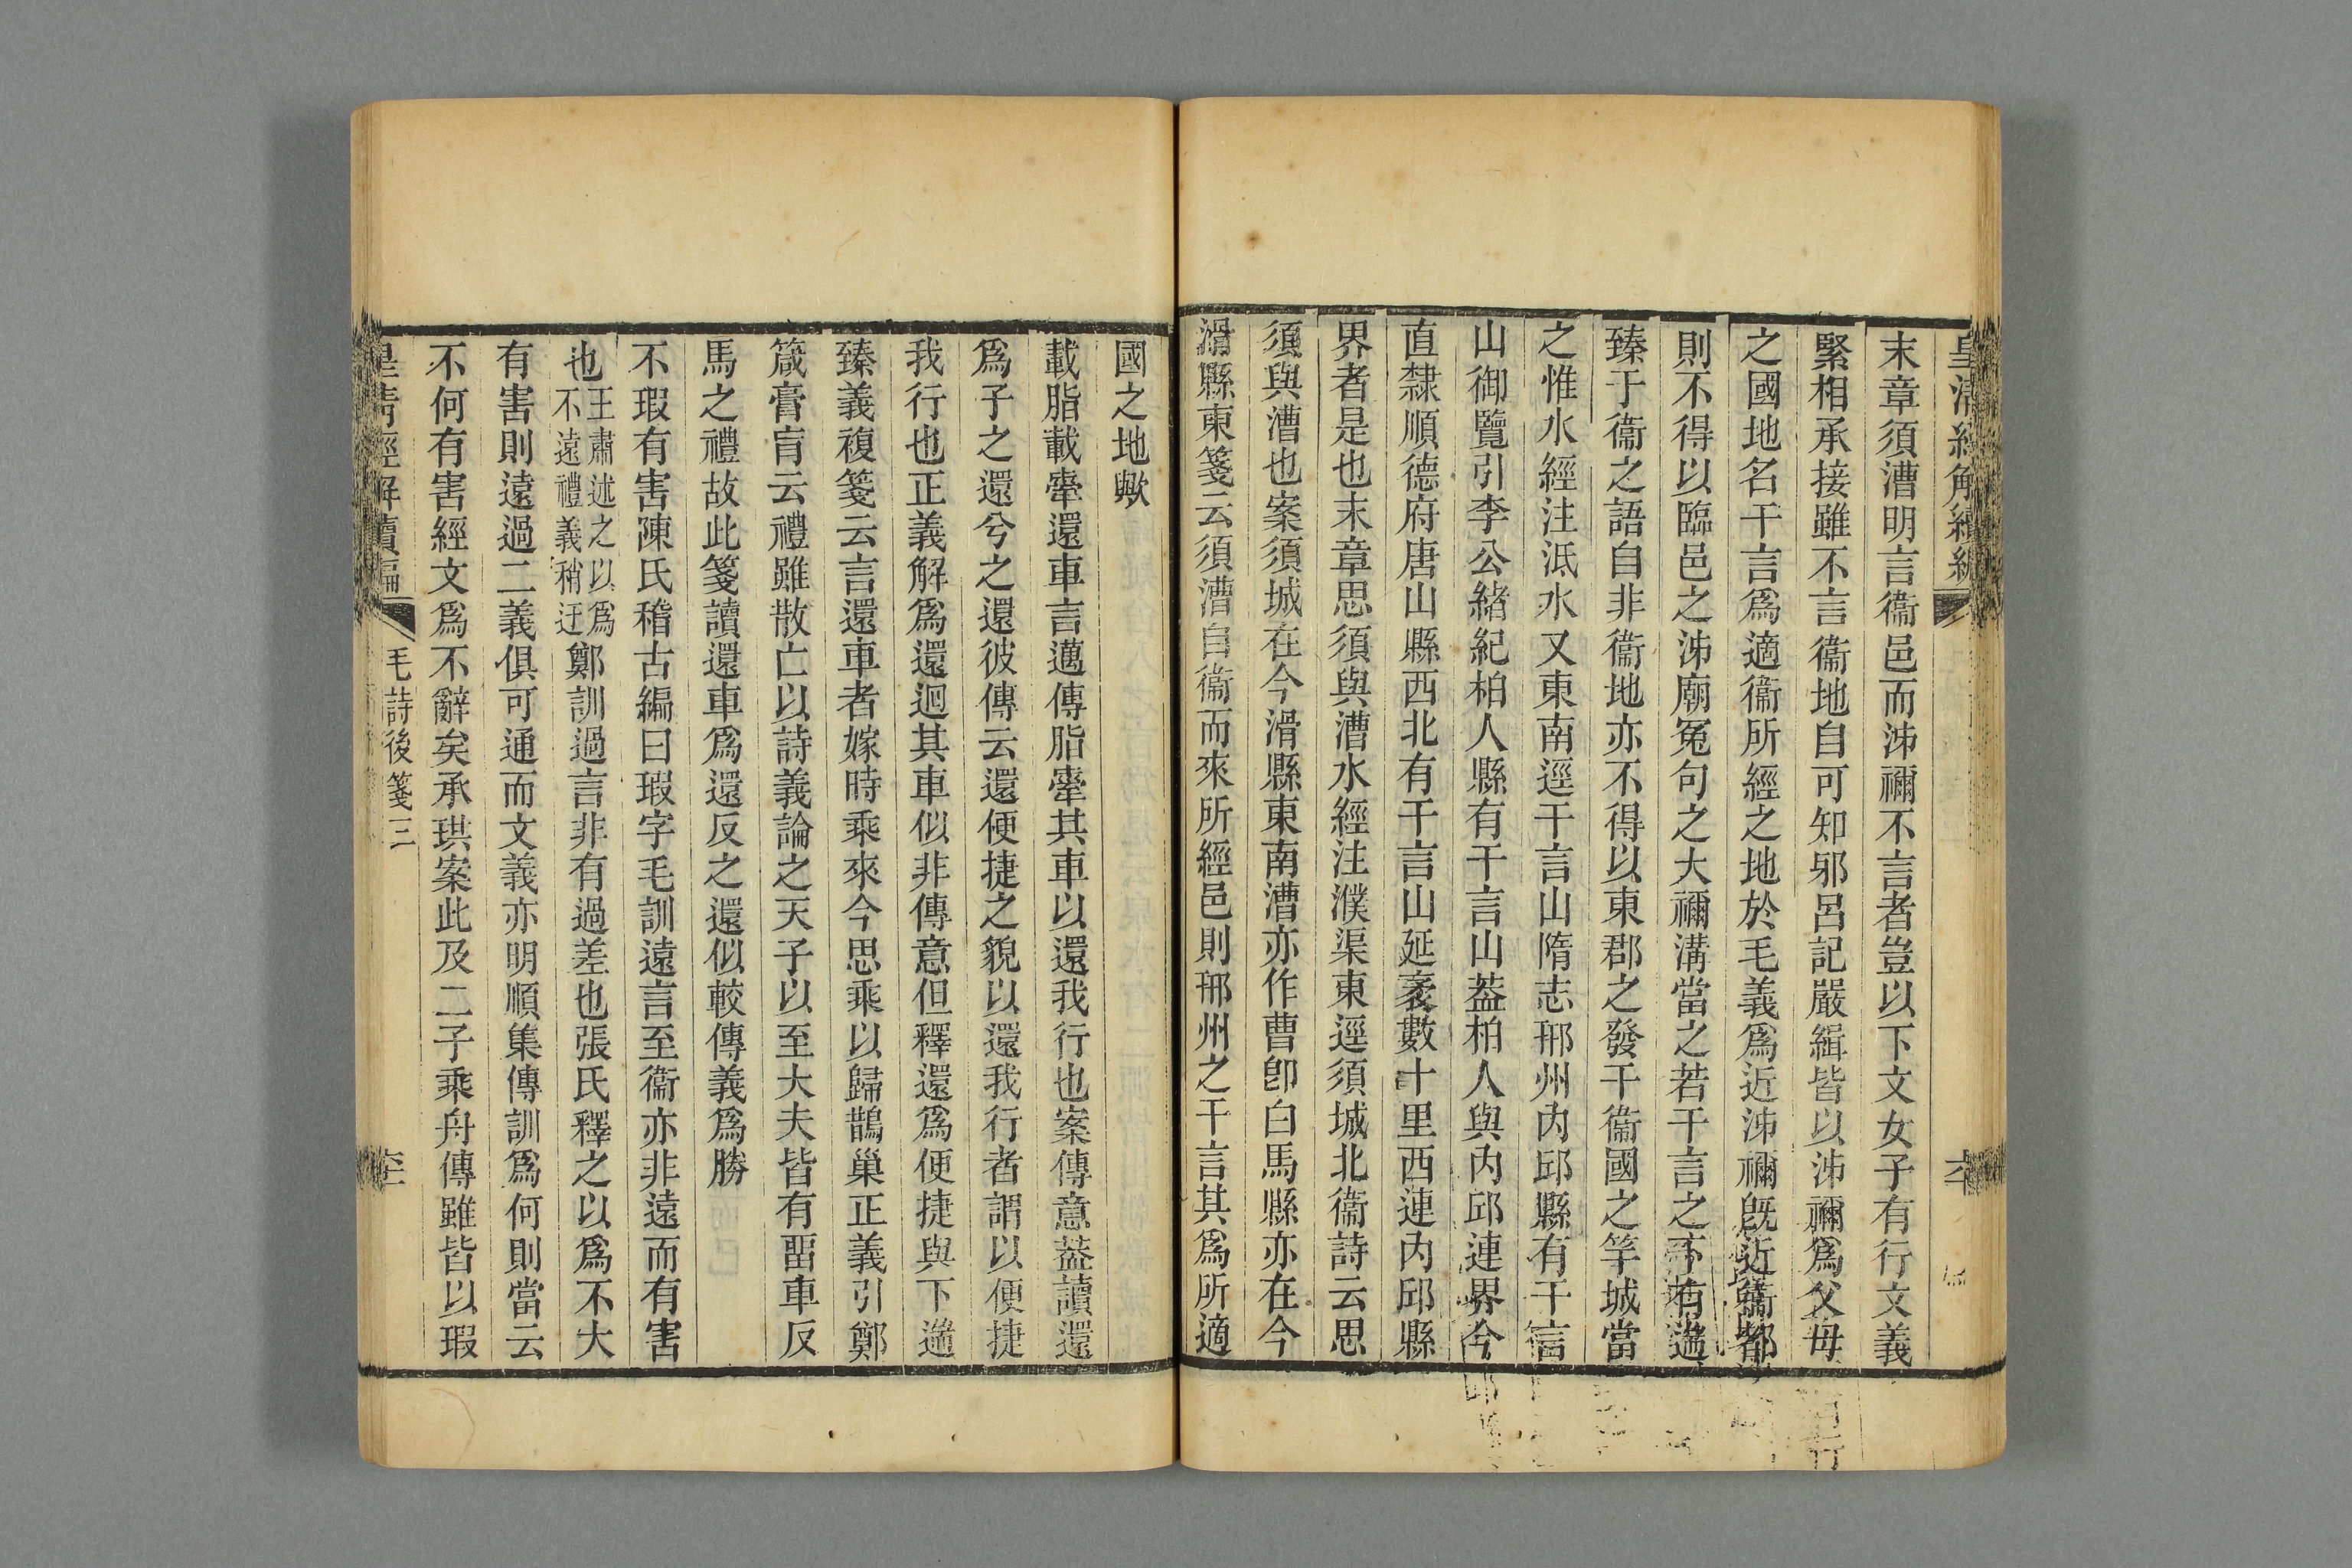 皇清經解續編
末章須漕明言衞邑而泲禰不言者豈以下文女子有行文義
緊相承接雖不言衞地自可知邪呂記嚴緝皆以泲禰爲父母
之國地名干言爲適衞所經之地於毛義爲近泲禰旣近衞都
則不得以臨邑之泲廟冤句之大禰溝當之若干言之下有遄
臻于衞之語自非衞地亦不得以東郡之發干衞國之竿城當
之惟水經注泜水又東南逕干言山隋志邢州內邱縣有干言
山御覽引李公緒紀柏人縣有干言山葢柏人與內邱連界今
直隸順德府唐山縣西北有干言山延袤數十里西連內邱縣
界者是也末章思須與漕水經注濮渠東逕須城北衞詩云思
須與漕也案須城在今滑縣東南漕亦作曹卽白馬縣亦在今
滑縣東箋云須漕自衞而來所經邑則邢州之干言其爲所適
國之地歟
載脂載舝還車言邁傳脂舝其車以還我行也案傳意葢讀還
爲子之還兮之還彼傳云還便捷之貌以還我行者謂以便捷
我行也正義解爲還迴其車似非傳意但釋還爲便捷與下遄
臻義複箋云言還車者嫁時乘來今思乘以歸鵲巢正義引鄭
箴膏肓云禮雖散亡以詩義論之天子以至大夫皆有畱車反
馬之禮故此箋讀還車爲還反之還似較傳義爲勝
不瑕有害陳氏稽古編曰瑕字毛訓遠言至衞亦非遠而有害
也王肅述之以爲不遠禮義稍迂鄭訓過言非有過差也張氏釋之以爲不大
有害則遠過二義俱可通而文義亦明順集傳訓爲何則當云
不何有害經文爲不辭矣承珙案此及二子乘舟傳雖皆以瑕
皇清經解續編
毛詩後箋三